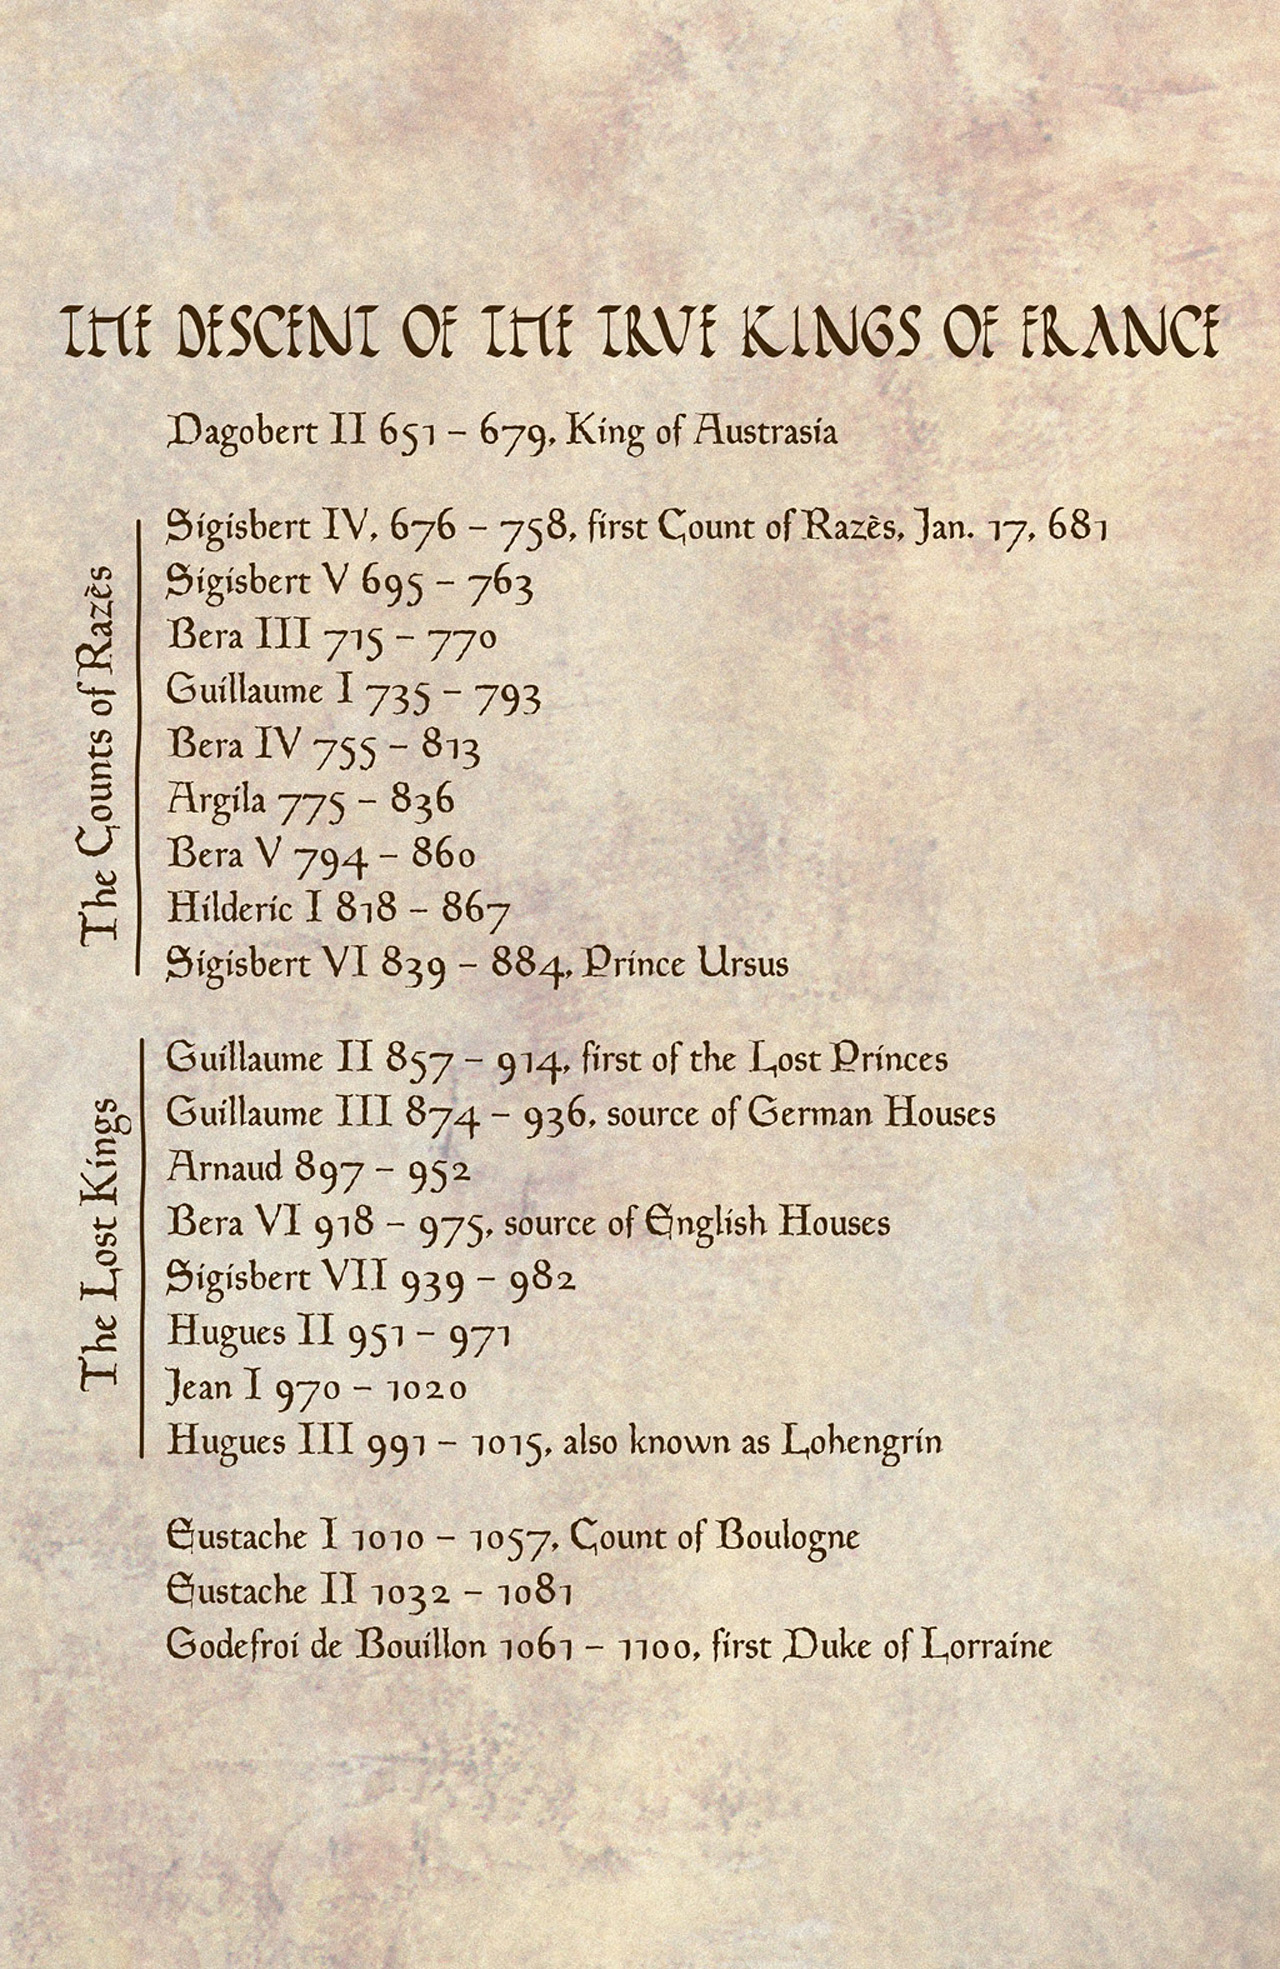 THE DESCENT OF THE TRVE KINGS OF FRANCE
Dagobert II 651 – 679, King of Austrasia
The Counts of Razès
Sigisbert IV, 676 – 758, first Count of Razès, Jan. 17, 681
Sigisbert V 695 – 763
Bera III 715 – 770
Guillaume I 735 – 793
Bera IV 755 – 813
Argila 775 – 836
Bera V 794 – 860
Hilderic I 818 – 867
Sigisbert VI 839 – 884, Prince Ursus
The Lost Kings
Guillaume II 857 – 914, first of the Lost Princes
Guillaume III 874 – 936, source of German Houses
Arnaud 897 – 952
Bera VI 918 – 975, source of English Houses
Sigisbert VII 939 – 982
Hugues II 951 – 971
Jean I 970 – 1020
Hugues III 991 – 1015, also known as Lohengrin
Eustache I 1010 – 1057, Count of Boulogne
Eustache II 1032 – 1081
Godefroi de Bouillon 1061 – 1100, first Duke of Lorraine